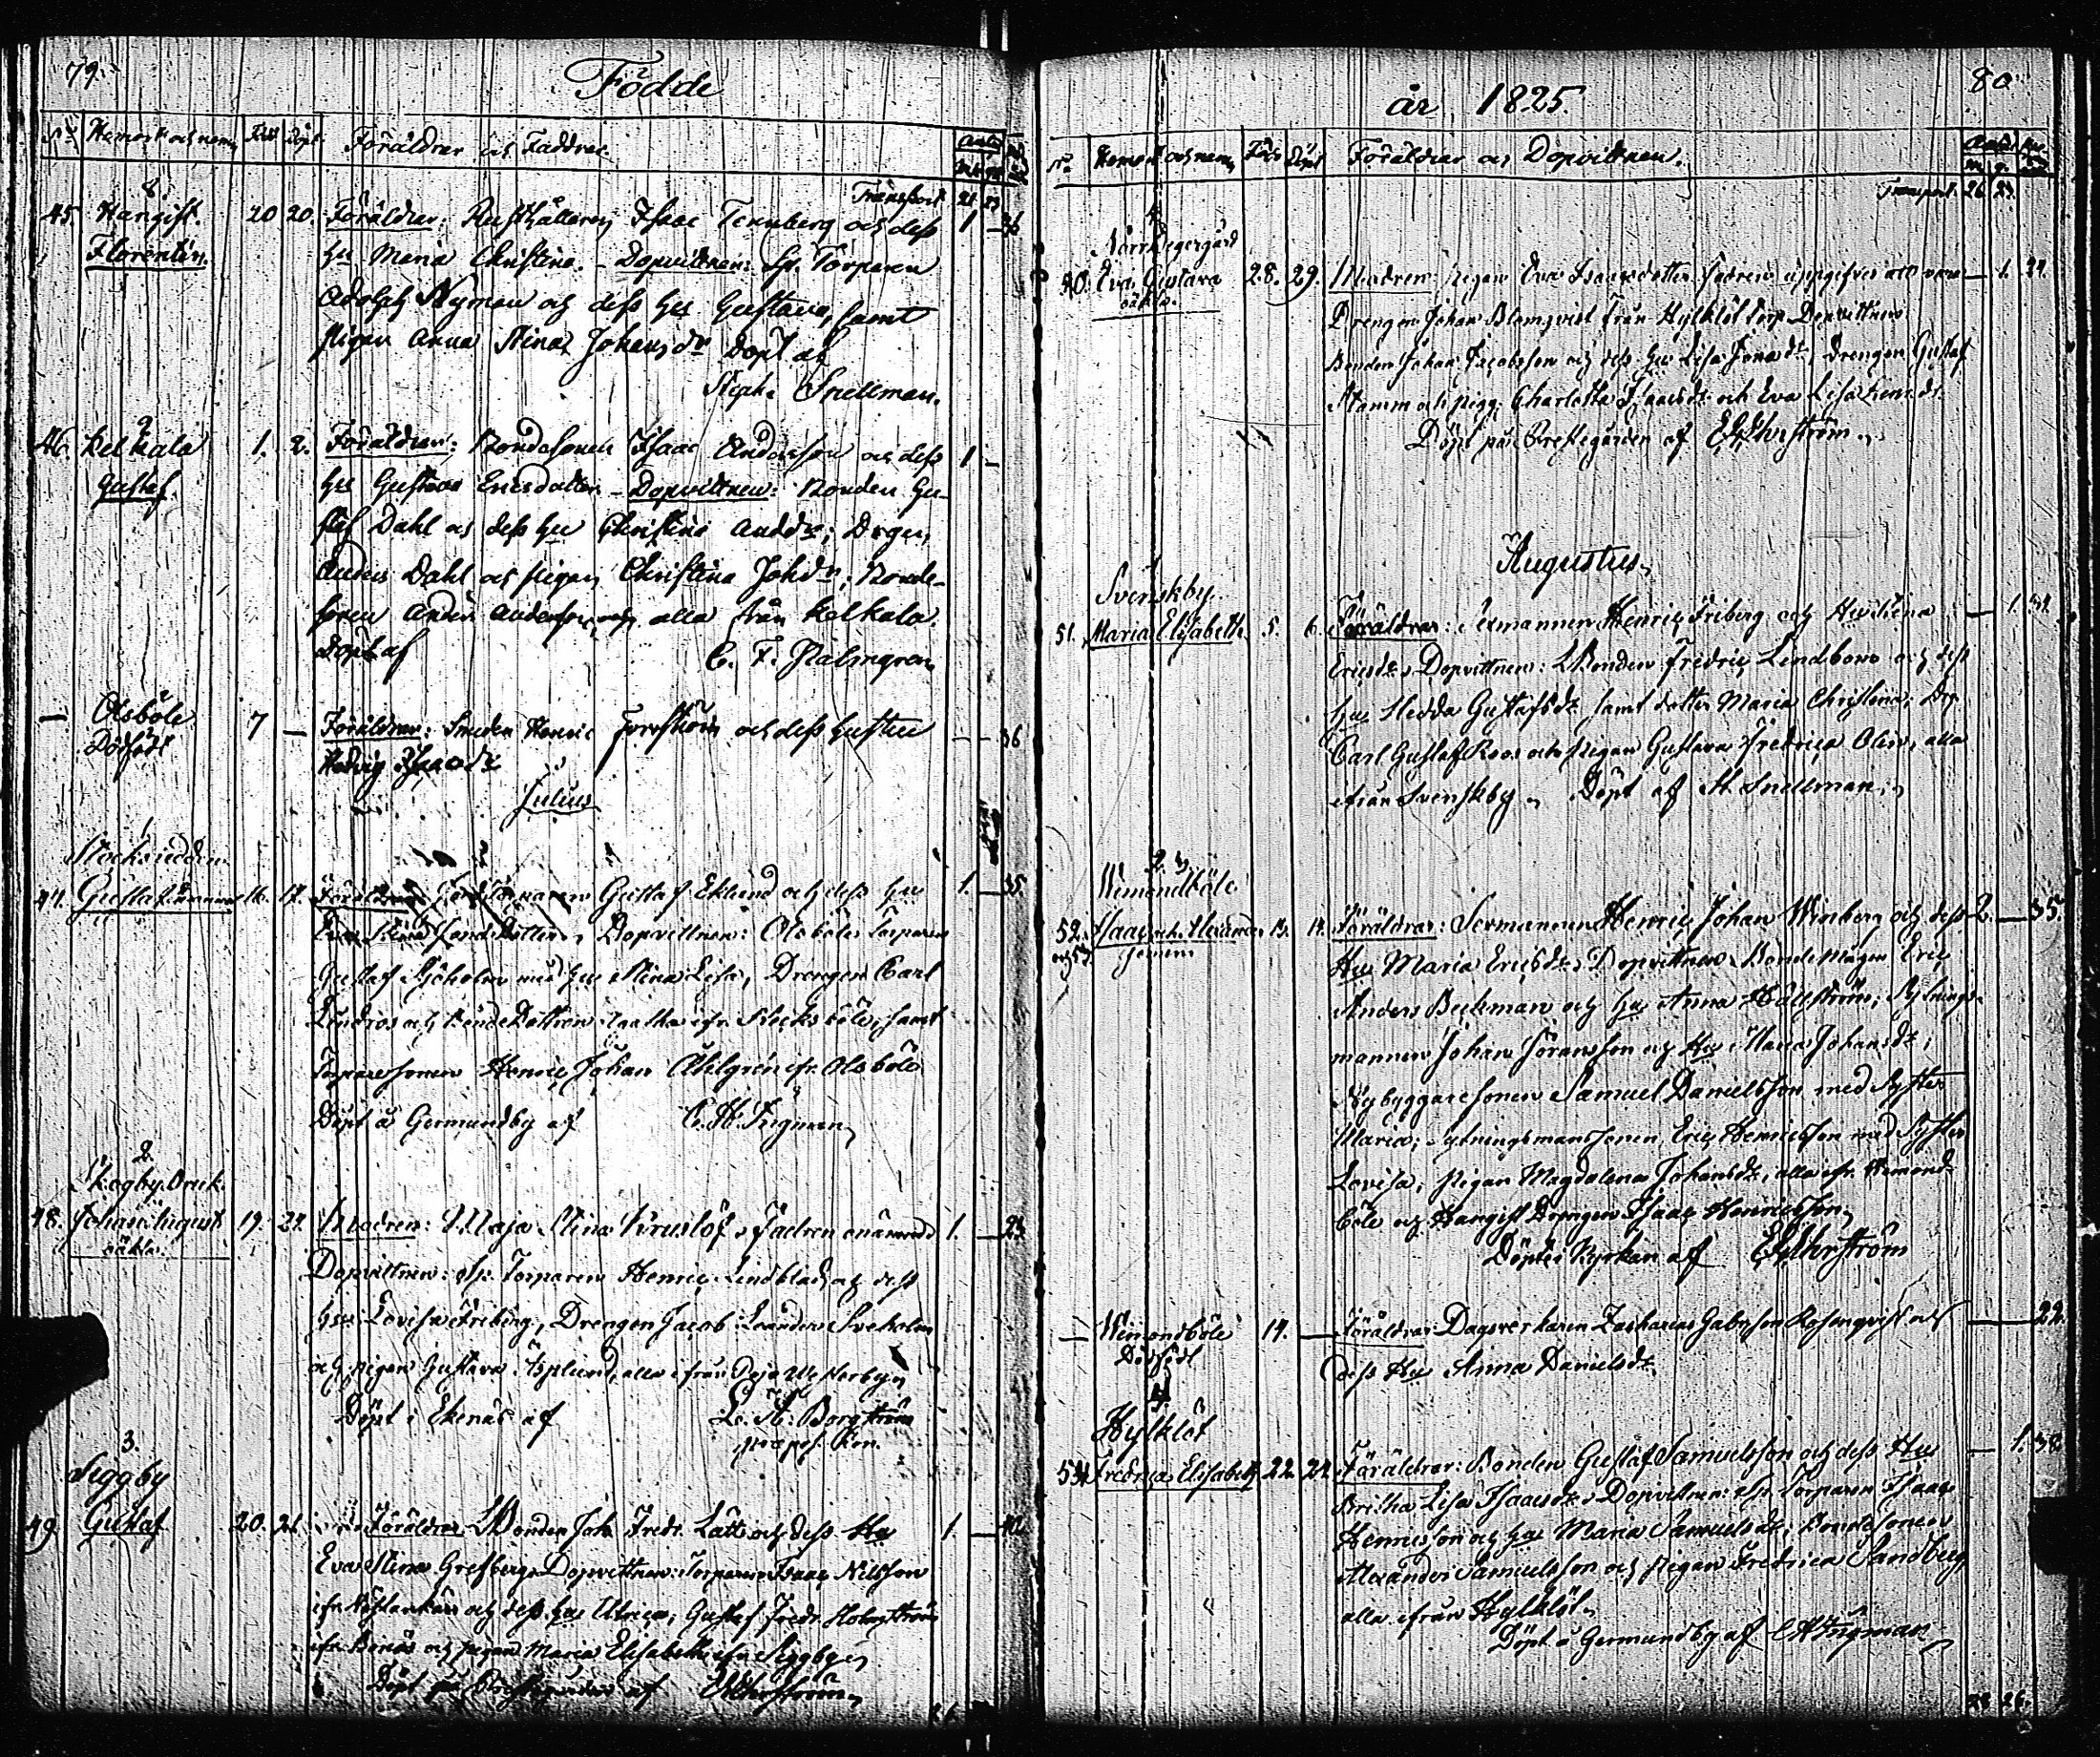 79.
Födde
No Hemort och namn Född Döpt Föräldrar och Faddrar
Transport 21 23
8.
45. Hangist. 20 20. Föräldrar: Rusthållaren Isaac Tennberg och dess 1 – 36
Florentin. hu Maria Christina. – Dopvittnen: Sp. Torparen
Adolph Nyman och dess hu Gustava, samt
pigan Anna Stina Johansdr Döpt af
Steph. Snellman.
9
46. Kelkala 1. 2. Föräldrar: Bondesonen Isaac Andersson och dess 1 –
Gustaf. hu Gustava Ericsdotter – Dopvittnen: Bonden Gu-
staf Dahl och dess hu Christina Anddr; Drgen
Anders Dahl och pigan Christina Johdr; Bonde-
sonen Anders Andersson, alla från Kelkala.
Döpt af C. F. Malmgren
Olsböle 7 – Föräldrar: Smeden Henric Forsström och dess hustru – – 36
Dödfödt Hedvig Isaacsdr
Julius
1
Stocksudden
47. Gustaf Herman 16. 17. Föräldrar: Torparen Gustaf Eklund och dess hu 1. – 35.
Eva Stina Jonsdotter, Dopvittnen: Olsböle Torparen
Gustaf Sjöholm med hu Stina Lisa, Drengen Carl
Lindros och Bondedottren ifr. Stocksböle, samt
Torparesonen Henric Johan Ahlgren ifr. Olsböle
Döpt å Germundby af C. H. Ingman
2.
Skogby Bruk.
48. Johan August 19. 24. Modren: Maja Stina Kruslöf, Fadren onämnd 1. – 23
oäkta.
Dopvittnen: Sp. Torparen Henric Lindblad och dess
hu Lovisa Friberg, Drengen Jacob Leander Sveholm
och pigan Gustava Asplund, alla ifrån
Döpt i Ekenäs af L. H. Borgström
3.
Seggby
49 Gustaf 20. 21. Föräldrar LBonden Joh. Fredr. Lätt och dess Hu 1. – 40.
Eva Stina Grefberg. Dopvittnen: Torparen Isaac Nilsson
ifr. och dess hu Ulrica; Gustaf Fredr. Holmström
ifr. Bonäs och pigan Maria Elisabeth ifr. Seggby
Döpt på Prestegården af Ehrström
26
80
år 1825.
No Hemort och namn Född Döpt Föräldrar och Dopvittnen.
Transport 26 23.
4
Norrby
50. Eva Gustava 28. 29. Modren Pigan Eva Isaacsdotter Fadren uppgifves att vara – 1. 24.
oäkta.
Drengen Johan Blomqvist från Hylklöt Dopvittnen
Bonden Johan Jacobsson och dess hu Lisa Jonasdr, Drengen Gustaf
Stamm och pigg. Charlotta Isaacsdr och Eva Lisa
Döpt på Prestegården af Ehrström
Augustus
1
Svenskby.
51. Maria Elisabeth 5. 6. Föräldrar: Sermannen Henric Friberg och Hu Stina – 1. 31.
Ericsdr. Dopvittnen: LBonden Fredric Lindbom och dess
hu Hedda Gustafsdr samt dotter Maria Christina; Drg.
Carl Gustaf Roos och pigan Gustava Fredrica Olin, alla
ifrån Svenskby. Döpt af St. Snellman.
2. 3
Wimondböle
52. Isaac och Alexander 13. 14. Föräldrar: Sermannen Henric Johan Winberg och dess 2. – 35.
och 53 Gemini
Hu Maria Ericsdr. Dopvittnen: Bondemågen Eric
Anders Beckman och hu Anna Hällström; Sytnings-
mannen Johan Göransson och Hu Maria Johansdr;
Nybyggaresonen Samuel Danielsson med Syster
Maria; Sytningsmanssonen Eric Henricsson med Syster
Lovisa, Pigan Magdalena Johansdr, alla ifr. Wimond-
böle och Hangist Drengen Isaac Henricsson
Döpte i Kyrkan af Ehrström
– Wimondböle 14. – Föräldrar Dagsverkaren Zacharias Gabrsson Rosenqvist och – – 22.
Dödfödt dess Hu Anna Danielsdr.
4.
Hylklöt
54. Fredrica Elisabeth 22. 24. Föräldrar: Bonden Gustaf Samuelsson och dess Hu – 1. 38.
Britha Lisa Isaacsdr. Dopvittnen: Sp. Torparen Isaac
Henricsson och hu Maria Samuelsdr; Bondesonen
Alexander Samuelsson och pigan Fredrica Sandberg
alla ifrån Hylklöt.
Döpt å Germundby af C H Ingman
28 26.